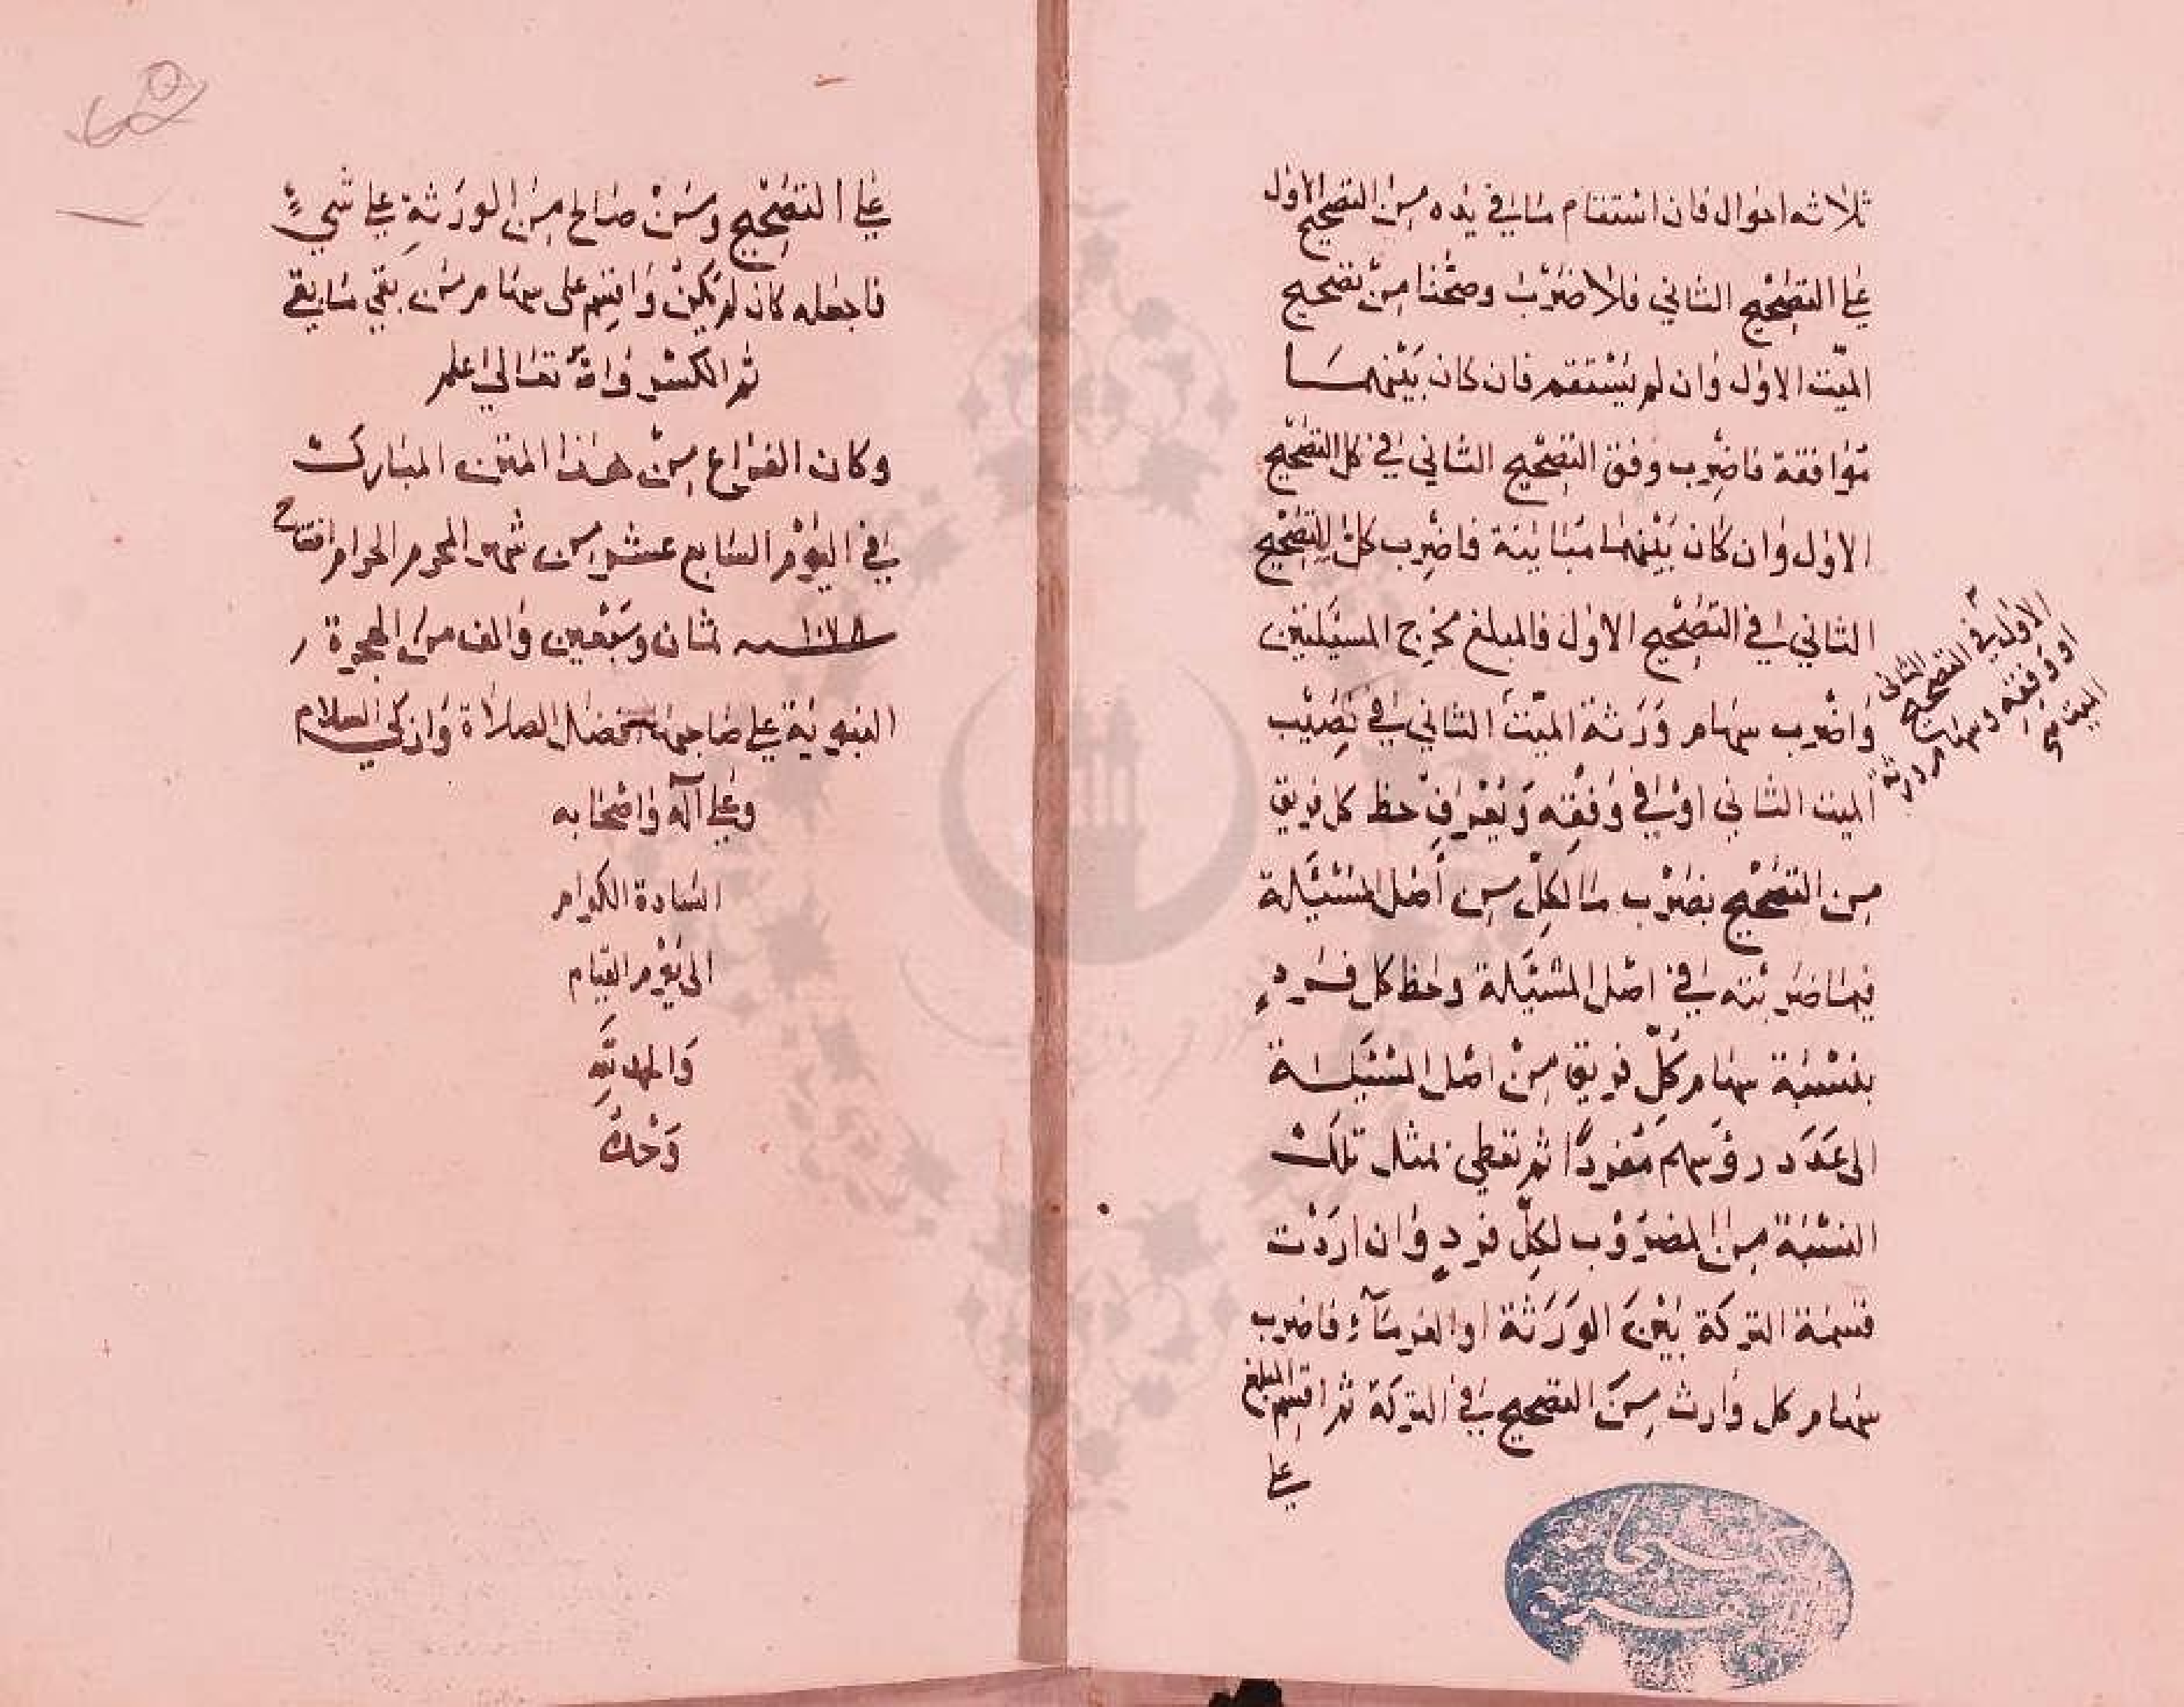 ثلاثه احوال فان استقام ما في يده من التصحيح الاول
على التصحيح الثاني فلا ضرب وصحتا من تصحيح
الميت الاول وان لم يستقم فان كان بينهما
موافقة فاضرب وفق التصحيح الثاني في كل التصحيح
الاول وان كان بينهما مباينة فاضرب كل التصحيح
الثاني في التصحيح الاول فالمبلغ مخرج المسئلتين
واضرب سهام ورثة الميت الثاني في نصيب
الميت الثاني او في وفقه ويعرف حظ كل فريق
من التصحيح بضرب ما لكل من أصل المسئلة
فيما ضربته في اصل المسئلة وحظ كل فرد
بنسبة سهام كل فريق من اصل المسئلة
الى عدد رؤسهم مفردا ثم تعطي بمثل تلك
النسبة من المضروب لكل فرد وان اردت
قسمة التركة بين الورثة او الغرماء فاضرب
سهام كل وارث من التصحيح في التركة ثم اقسم المبلغ
على
الاول في التصحيح الثاني
او وفقه وسهام ورثة
الميت
على التصحيح ومن صالح من الورثة على شيء
فاجعله كان لم يكن واقسم على سهام من بقي ما بقي
ثم الكسر والله تعالى اعلم
وكان الفراغ من هذا المتن المبارك
في اليوم السابع عشر من شهر المحرم الحرام افتتاح
سنة ١٠٧٨ ثمان وسبعين والف من الهجرة
النبوية على صاحبها افضل الصلاة وازكى السلام
وعلى آله واصحابه
السادة الكرام
الى يوم القيام
والحمد لله
وحده